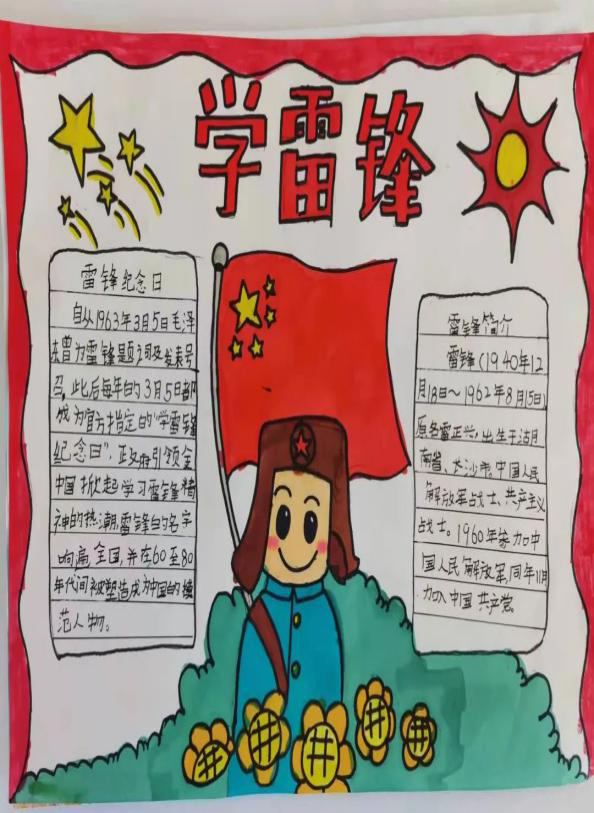 学雷锋
雷锋纪念日
自从1963年3月5日毛泽
东曾为雷锋题词及发表号
召，此后每年的3月5日都
成为官方指定的“学雷锋
纪念日”，政府引领全
中国掀起学习雷锋精
神的热潮，雷锋的名字
响遍全国，并在60至80
年代间被塑造成为中国的模
范人物。
雷锋简介
雷锋（1940年12
月18日～1962年8月15日），
原名雷正兴，出生于湖
南省，长沙市。中国人民
解放军战士、共产主义
战士。1960年参加中
国人民解放军，同年11月
加入中国共产党